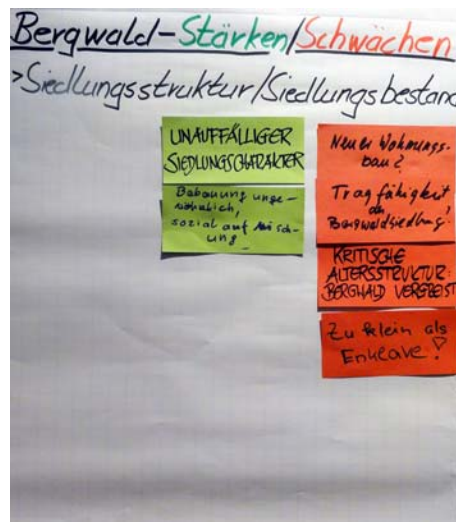 Bergwald-Stärken/Schwächen
>Siedlungsstruktur/Siedlungsbestand
UNAUFFÄLLIGER
SIEDLUNGSCHARAKTER
Bebauung unge-
wöhnlich,
sozial auf Misch-
ung
Neuer Wohnungs-
bau?
Tragfähigkeit
der
Bergwaldsiedlung?
KRITISCHE
ALTERSSTRUKTUR:
BERGWALD VERGREIST
Zu klein als
Enklave?